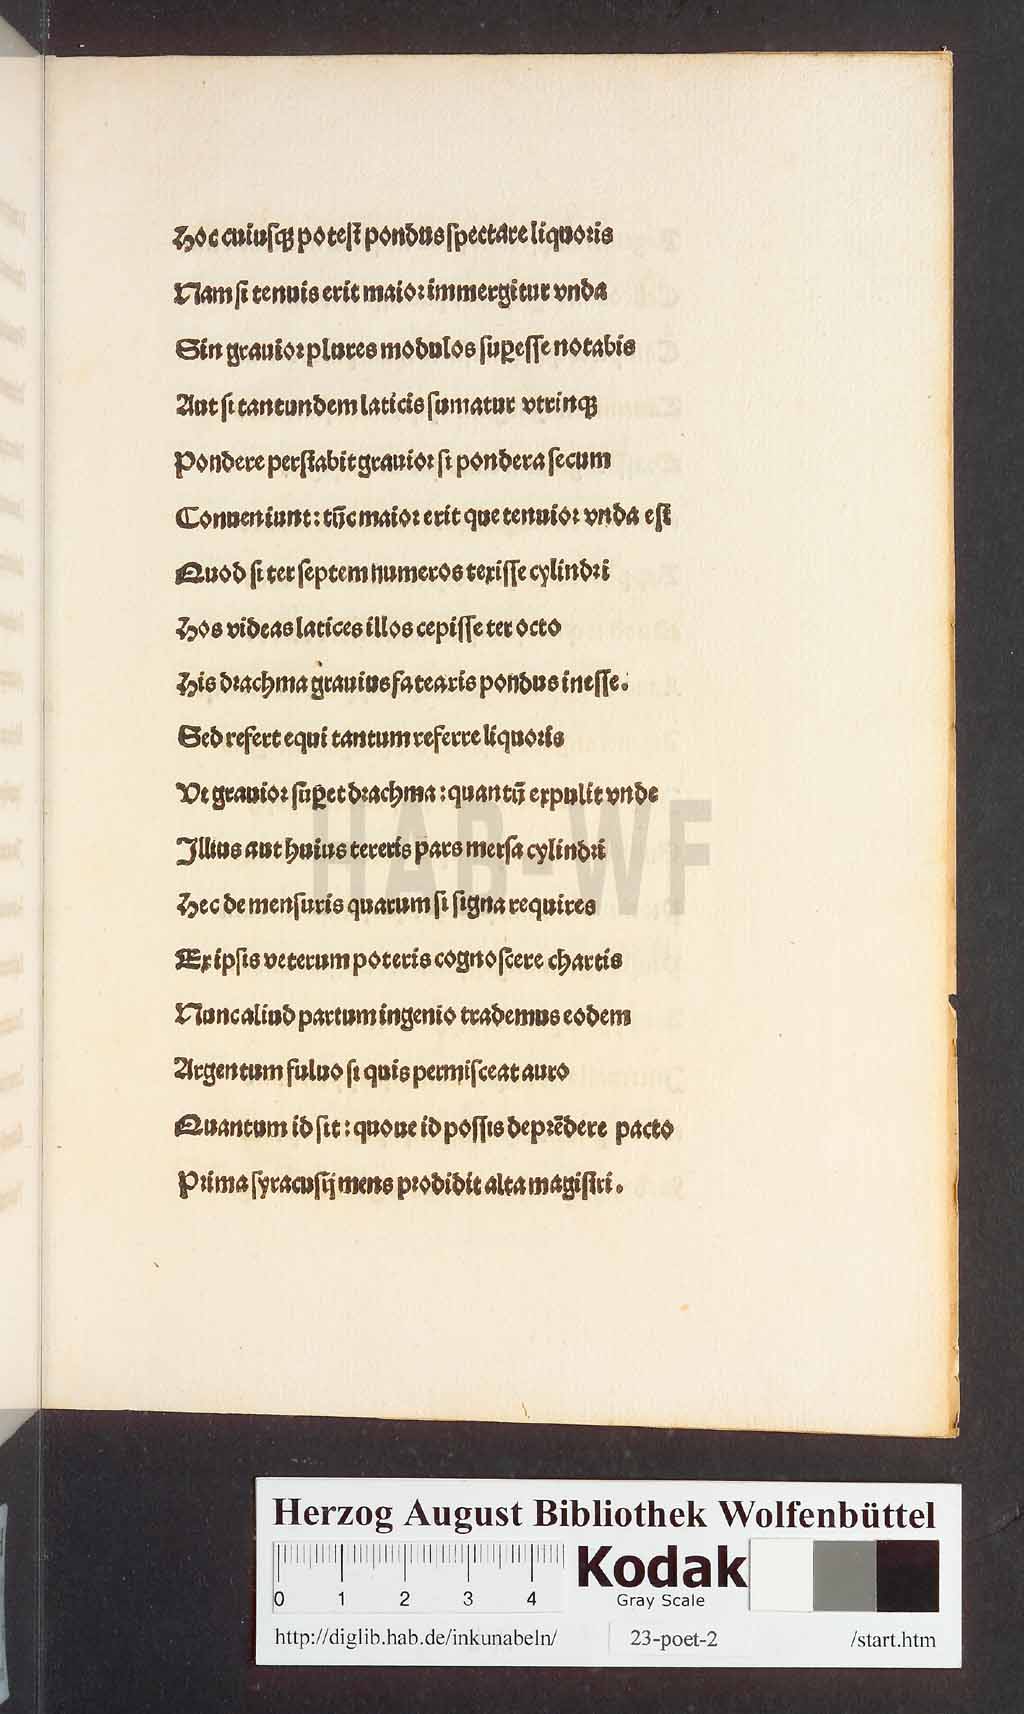 Hoc cuiusqꝫ potest pondus spectare liquoris
Nam si tenuis erit maior immergitur vnda
Sin grauior plures modulos suꝑesse notabis
Aut si tantundem laticis sumatur vtrinqꝫ
Pondere perstabit grauior si pondera secum
Conueniunt: tūc maior erit que tenuior vnda est
Quod si ter septem numeros texisse cylindri
Hos videas latices illos cepisse ter octo
His drachma grauius fatearis pondus inesse.
Sed refert equi tantum referre liquoris
Vt grauior suꝑet drachma: quantū expulit vnde
Illius aut huius teretis pars mersa cylindri
Hec de mensuris quarum si signa requires
Ex ipsis veterum poteris cognoscere chartis
Nunc aliud partum ingenio trademus eodem
Argentum fuluo si quis permisceat auro
Quantum id sit: quoue id possis deprēdere pacto
Prima syracusij mens prodidit alta magistri.
HAB-WF
Herzog August Bibliothek Wolfenbüttel
0 1 2 3 4
Kodak
Gray Scale
http://diglib.hab.de/inkunabeln/ 23-poet-2 /start.htm